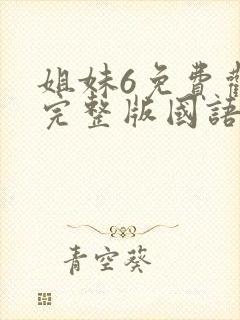 姐妹6免費觀
完整版國語
青空葵